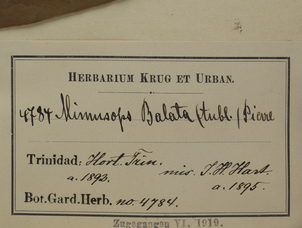 HERBARIUM KRUG ET URBAN.
4784 Mimusops Balata (Aubl.) Pierre
Trinidad: Hort. Trin.
a. 1893. mis. J. H. Hart.
a. 1895.
Bot. Gard. Herb. no. 4784.
Zugegangen VI. 1919.